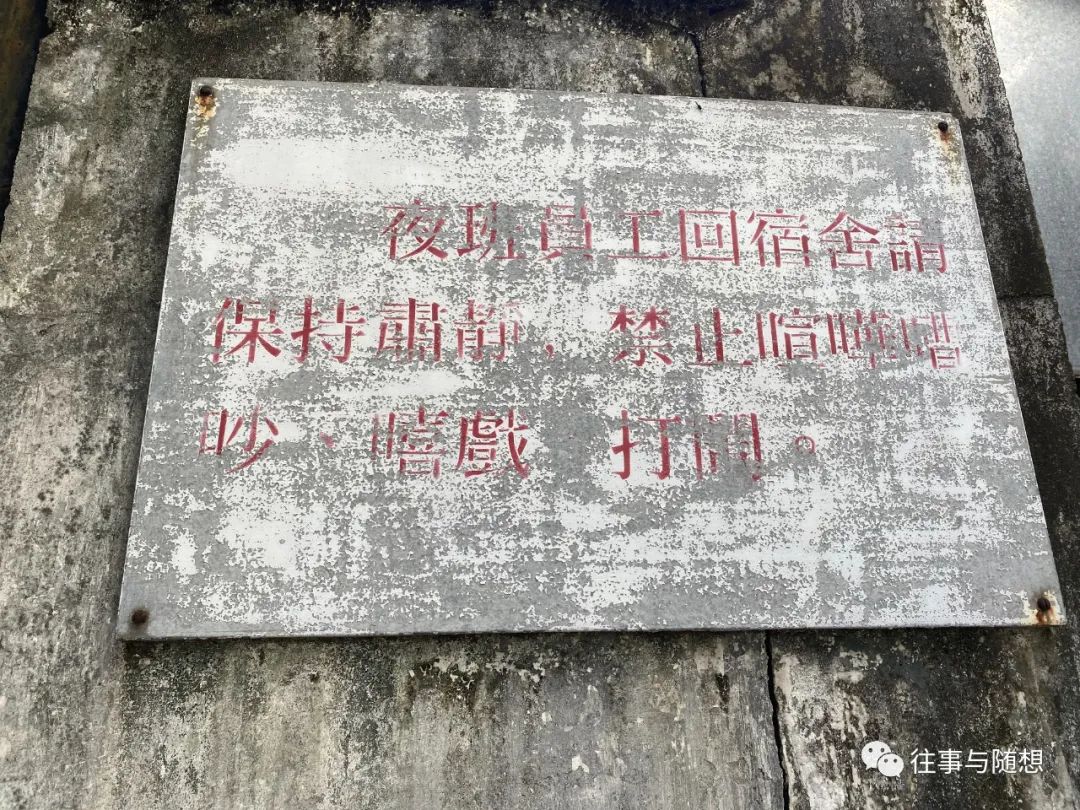 夜班員工回宿舍請
保持肅靜，禁止喧嘩嘈
吵、嘻戲 打鬧。
往事与随想